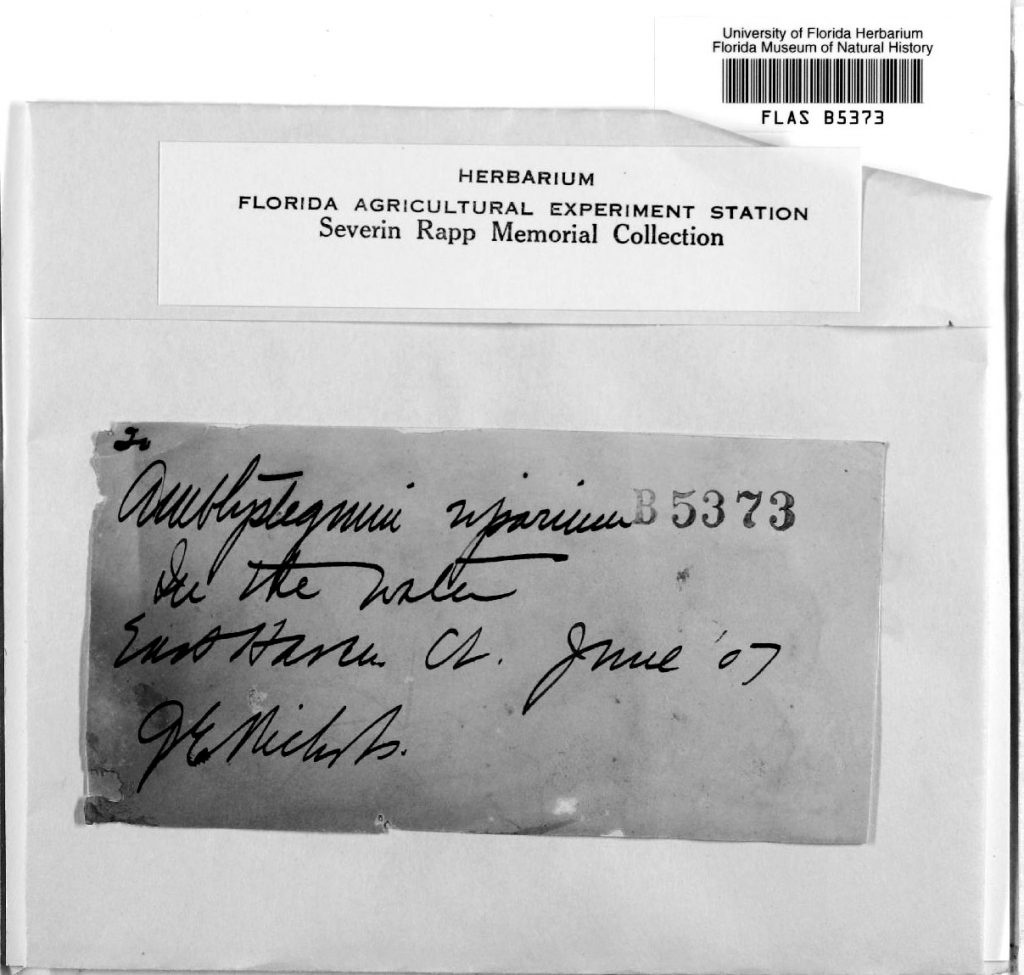 University of Florida Herbarium
Florida Museum of Natural History
FLAS B5373
HERBARIUM
FLORIDA AGRICULTURAL EXPERIMENT STATION
Severin Rapp Memorial Collection
Amblystegium riparium B5373
In the water
East Haven Ct. June '07
G E Nichols.